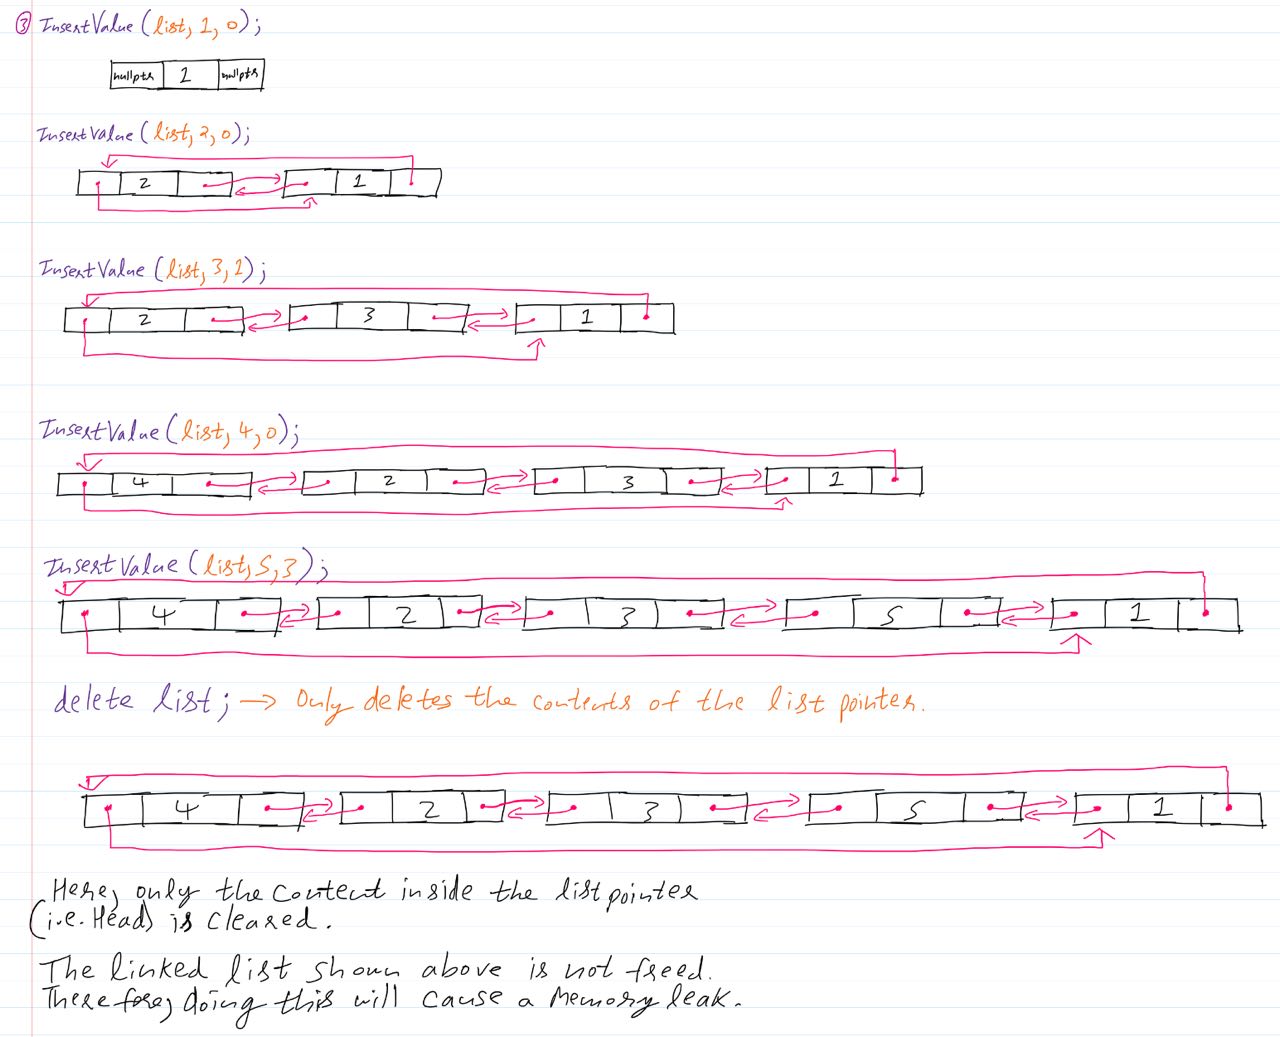 ③ InsertValue (list, 1, 0);
nullptr 1 nullptr
InsertValue (list, 2, 0);
2 1
InsertValue (list, 3, 1);
2 3 1
InsertValue (list, 4, 0);
4 2 3 1
InsertValue (list, 5, 3);
4 2 3 5 1
delete list; → Only deletes the contents of the list pointer.
4 2 3 5 1
Here, only the content inside the list pointer
(i.e. Head) is cleared.
The linked list shown above is not freed.
Therefore, doing this will cause a Memory leak.